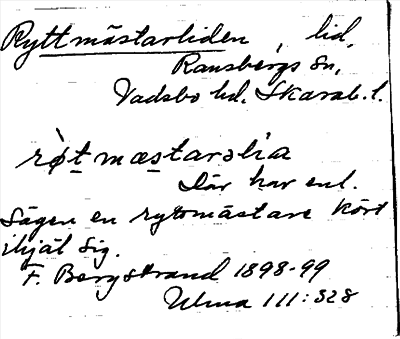 Ryttmästarliden, lid,
Ransbergs sn,
Vadsbo hd. Skarab. l.
rø̀tmæstarəlia
Där har enl.
Sägen en ryttmästare kört
ihjäl sig.
F. Bergstrand 1898-99
Ulma 111:328